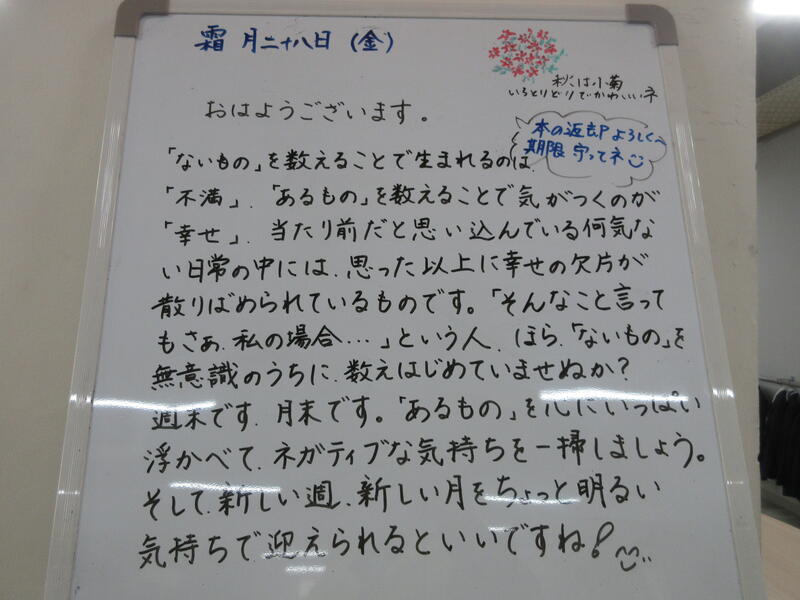 霜月二十八日(金)
秋は小菊
いろとりどりでかわいいネ
おはようございます。
本の返却よろしく
期限守ってネ
「ないもの」を数えることで生まれるのは、
「不満」、「あるもの」を数えることで気がつくのが
「幸せ」、当たり前だと思い込んでいる何気な
い日常の中には、思った以上に幸せの欠片が
散りばめられているものです。「そんなこと言って
もさぁ、私の場合…」という人、ほら、「ないもの」を
無意識のうちに、数えはじめていませぬか?
週末です、月末です。「あるもの」を心にいっぱい
浮かべて、ネガティブな気持ちを一掃しましょう。
そして、新しい週、新しい月をちょっと明るい
気持ちで迎えられるといいですね!